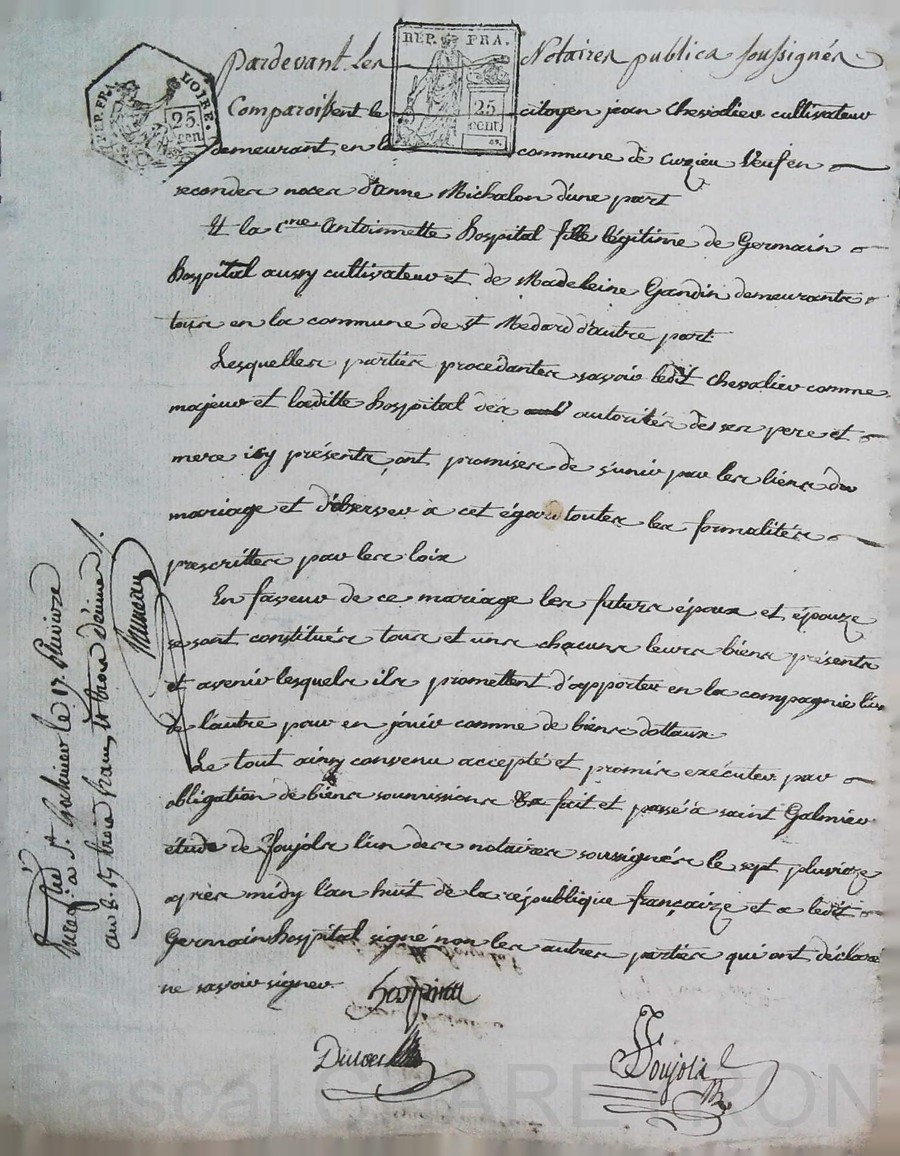 REP. FRA. LOIRE. 25 cen
REP. FRA. 25 cent
Pardevant les Notaires publics soussignés
Comparoissent le citoyen jean Chevalier cultivateur
demeurant en la commune de Cuzieu veuf en
secondes noces d'anne Michalon d'une part
Et la Cne Antoinnette hospital fille légitime de Germain
hospital aussy cultivateur et de Madeleine Gandin demeurants
tous en la commune de St Medard d'autre part
Lesquelles parties procédantes savoir ledit Chevalier comme
majeur et laditte hospital des autorités de ses pere et
mere icy présents ont promises de s'unir par les liens du
mariage et d'observer à cet égard toutes les formalités
prescrittes par les loix
En faveur de ce mariage les futurs époux et épouze
se sont constitués tous et uns chacuns leurs biens présents
et avenir lesquels ils promettent d'apporter en la compagnie l'un
de l'autre pour en jouir comme de biens dottaux
Le tout ainsy convenu accepté et promis exécuter par
obligation de biens soumissions &a fait et passé à saint Galmier
étude de Soujols l'un des notaires soussignés le sept pluvioze
après midy l'an huit de la république françaize et a ledit
Germain hospital signé non les autres parties qui ont déclaré
ne savoir signer
hospital
Soujols
Enregistré à St Galmier le 17 Pluvioze
an 8. Rç trois francs trois décimes